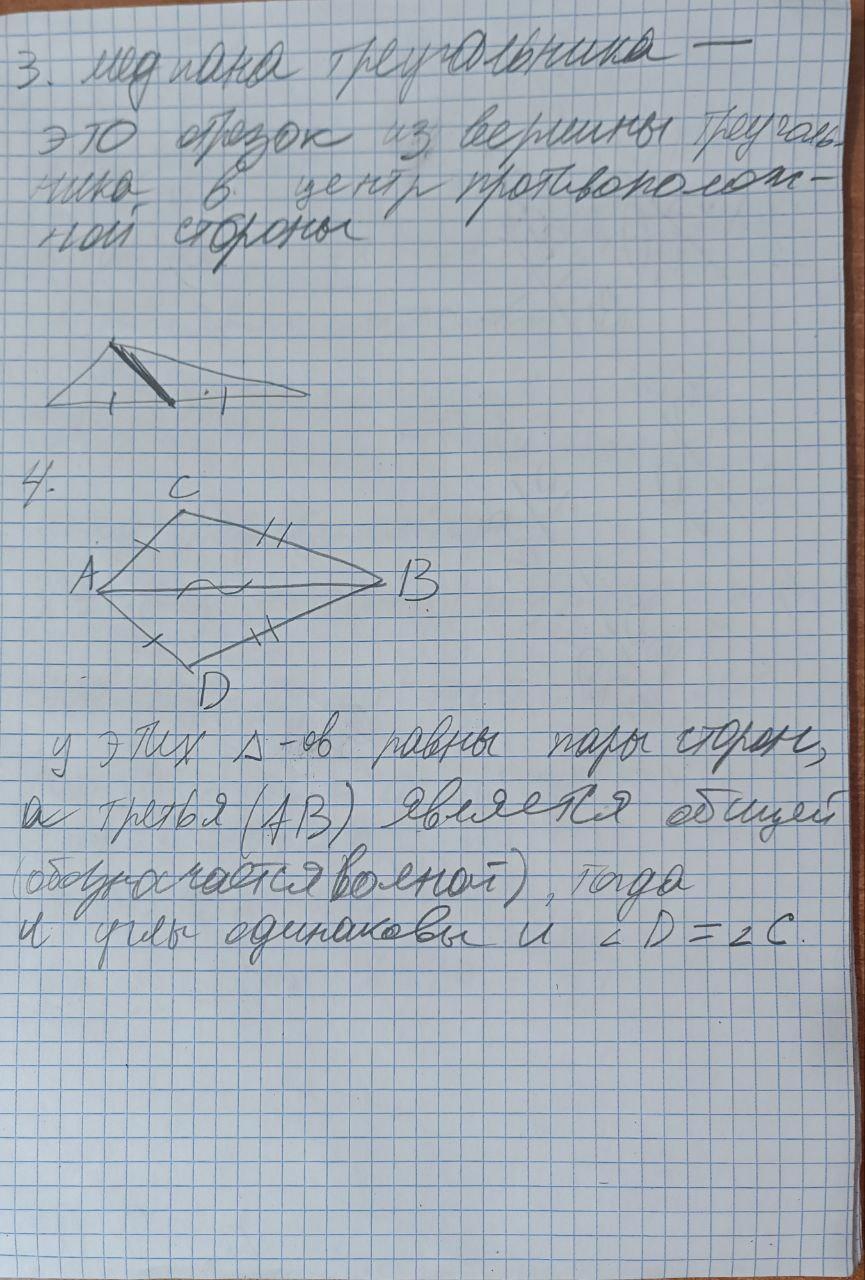 3. Медиана треугольника —
это отрезок из вершины треуголь-
ника в центр противополож-
ной стороны
4.
C
A
B
D
у этих Δ-ов равны пары сторон,
а третья (AB) является общей
(обозначается волной), тогда
и углы одинаковы и ∠D = ∠C.